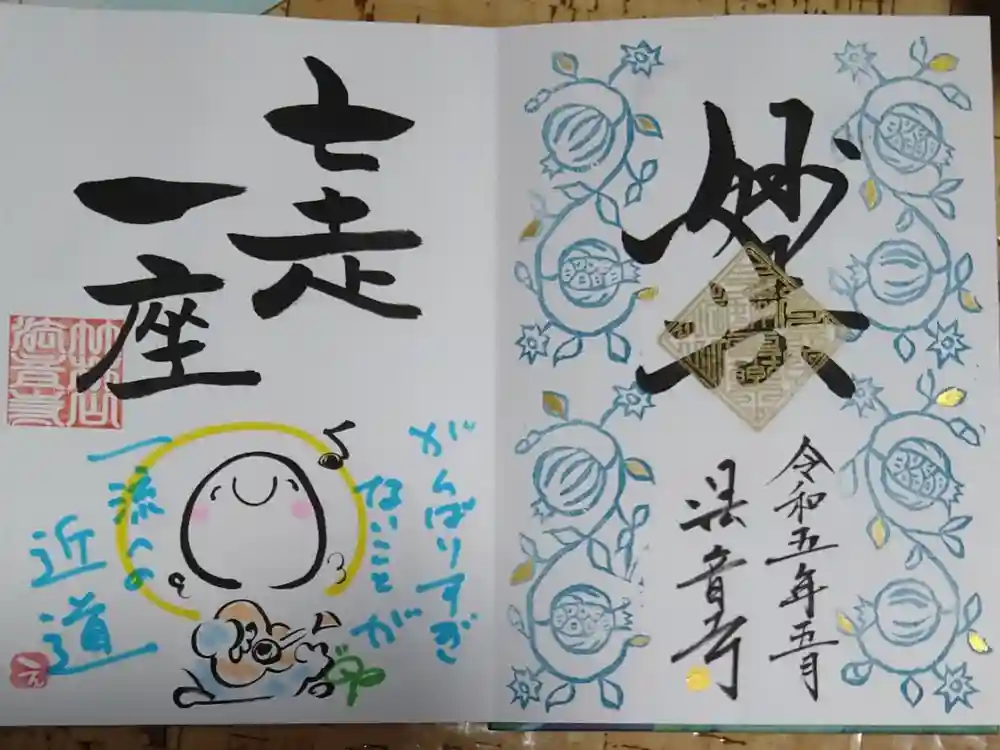 妙楽
令和五年五月
法音寺
七走
一座
がんばりすぎ
ないことが
一流への
近道
え